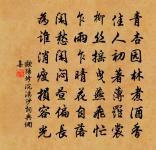 青杏園林煮酒香
佳人初著薄羅裳
柳絲搖曳燕飛忙
乍雨乍晴花自落
閑愁閑悶晝偏長
為誰消瘦損容光
歐陽修浣溪沙